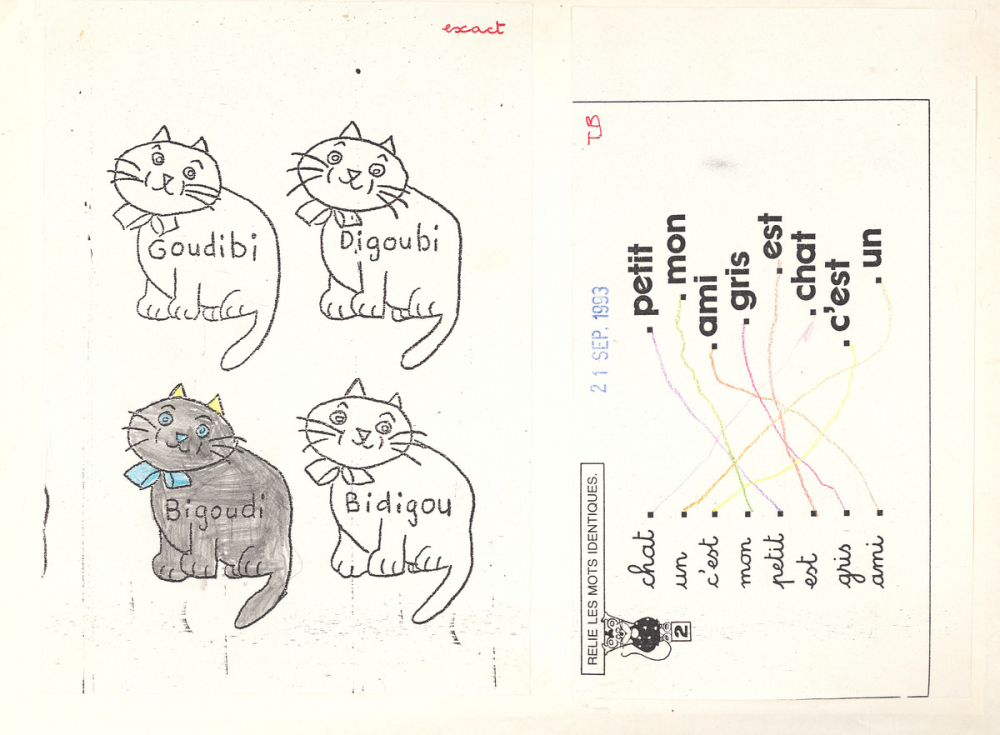 exact
Goudibi
Digoubi
Bigoudi
Bidigou
TB
21 SEP. 1993
RELIE LES MOTS IDENTIQUES.
2
chat
un
c'est
mon
petit
est
gris
ami
petit
mon
ami
gris
est
chat
c'est
un